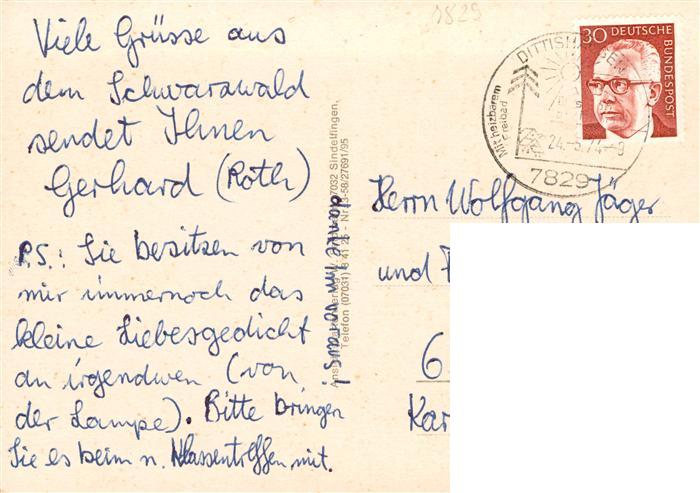 Viele Grüsse aus
dem Schwarzwald
sendet Ihnen
Gerhard (Roth)
P.S.: Sie besitzen von
mir immernoch das
kleine Liebesgedicht
an irgendwen (von
der Lampe). Bitte bringen
Sie es beim n. Klassentreffen mit.
danke im voraus!
7032 Sindelfingen,
Telefon (07031)
1829
30 DEUTSCHE
BUNDESPOST
DITTISHAUSEN
Mit heizbarem
Freibad
24.-5.74-9
7829
Herrn Wolfgang Jäger
und
6
Kar